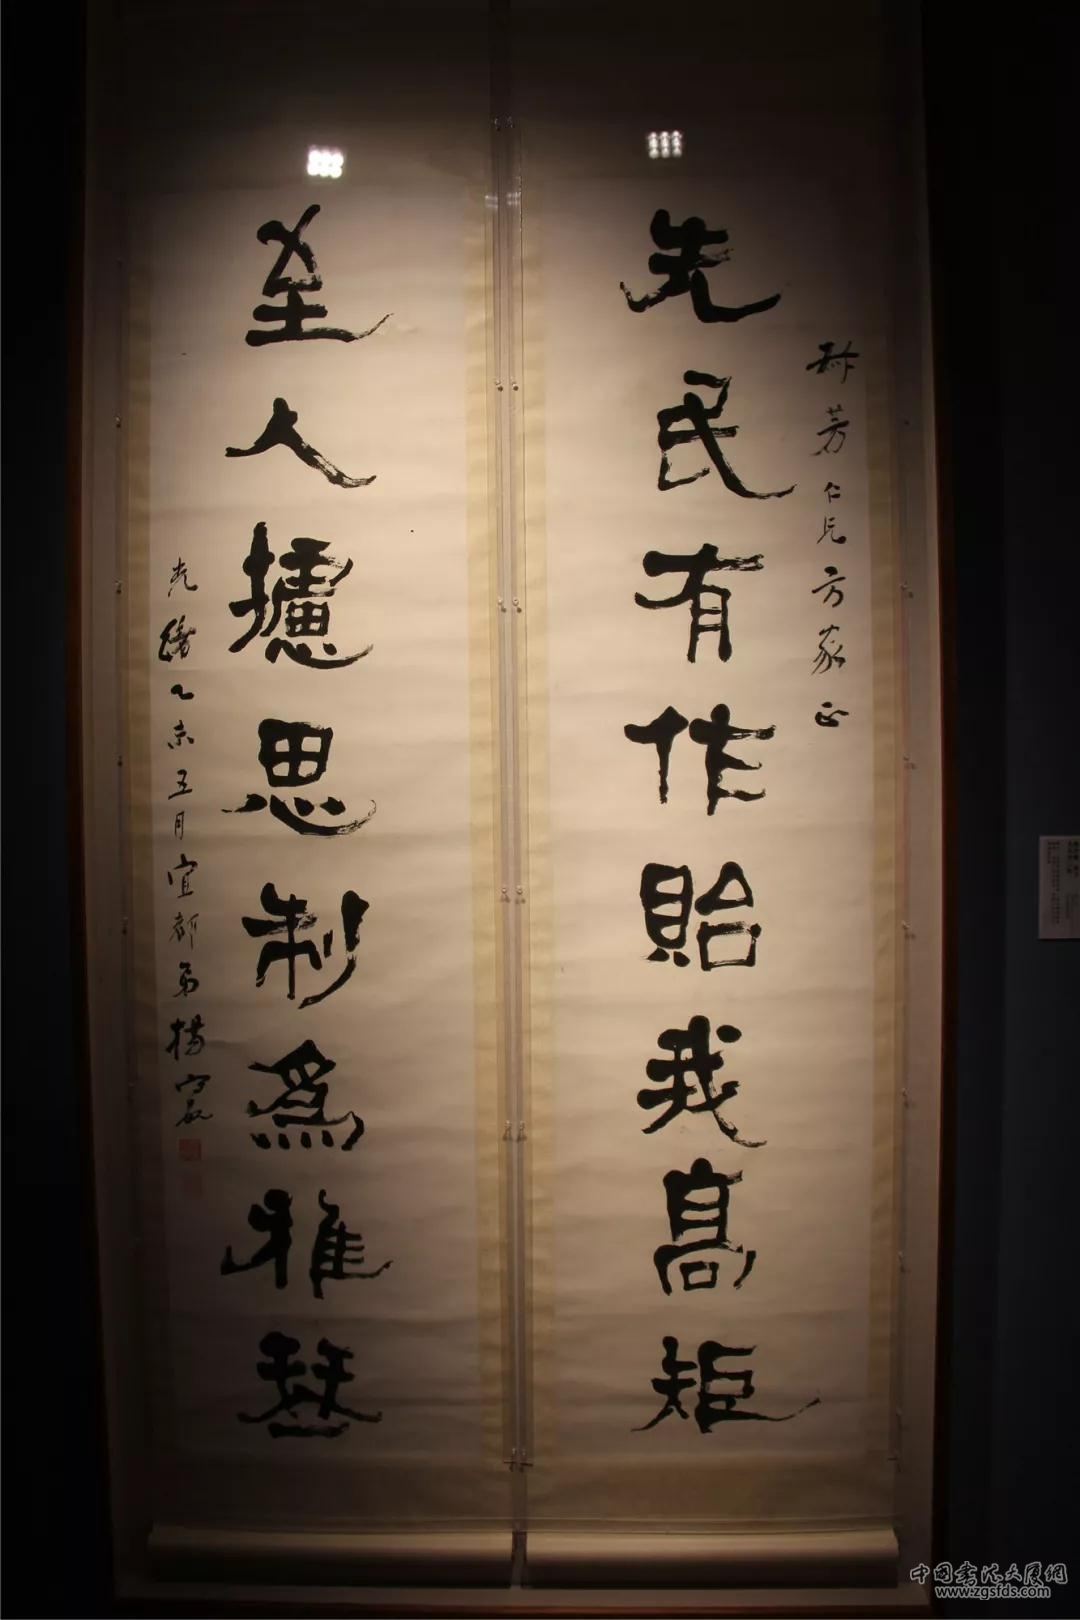 芳仁兄方家正
先民有作貽我高矩
至人攄思制為雅琴
光緒乙未五月宜都弟楊守敬
中國書法大厦網
www.zgsfds.com